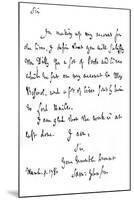 Sir
In making up my account for
the Lives, I desire that you will satisfy
Mr Dilly for a set of Poets and Lives
which he put on my account to Mr
and a set of Lives sent by him
to Lord Hailes.
I am glad that the work is at
last done. I am,
Sir
Your humble servant
March 1781. Sam: Johnson